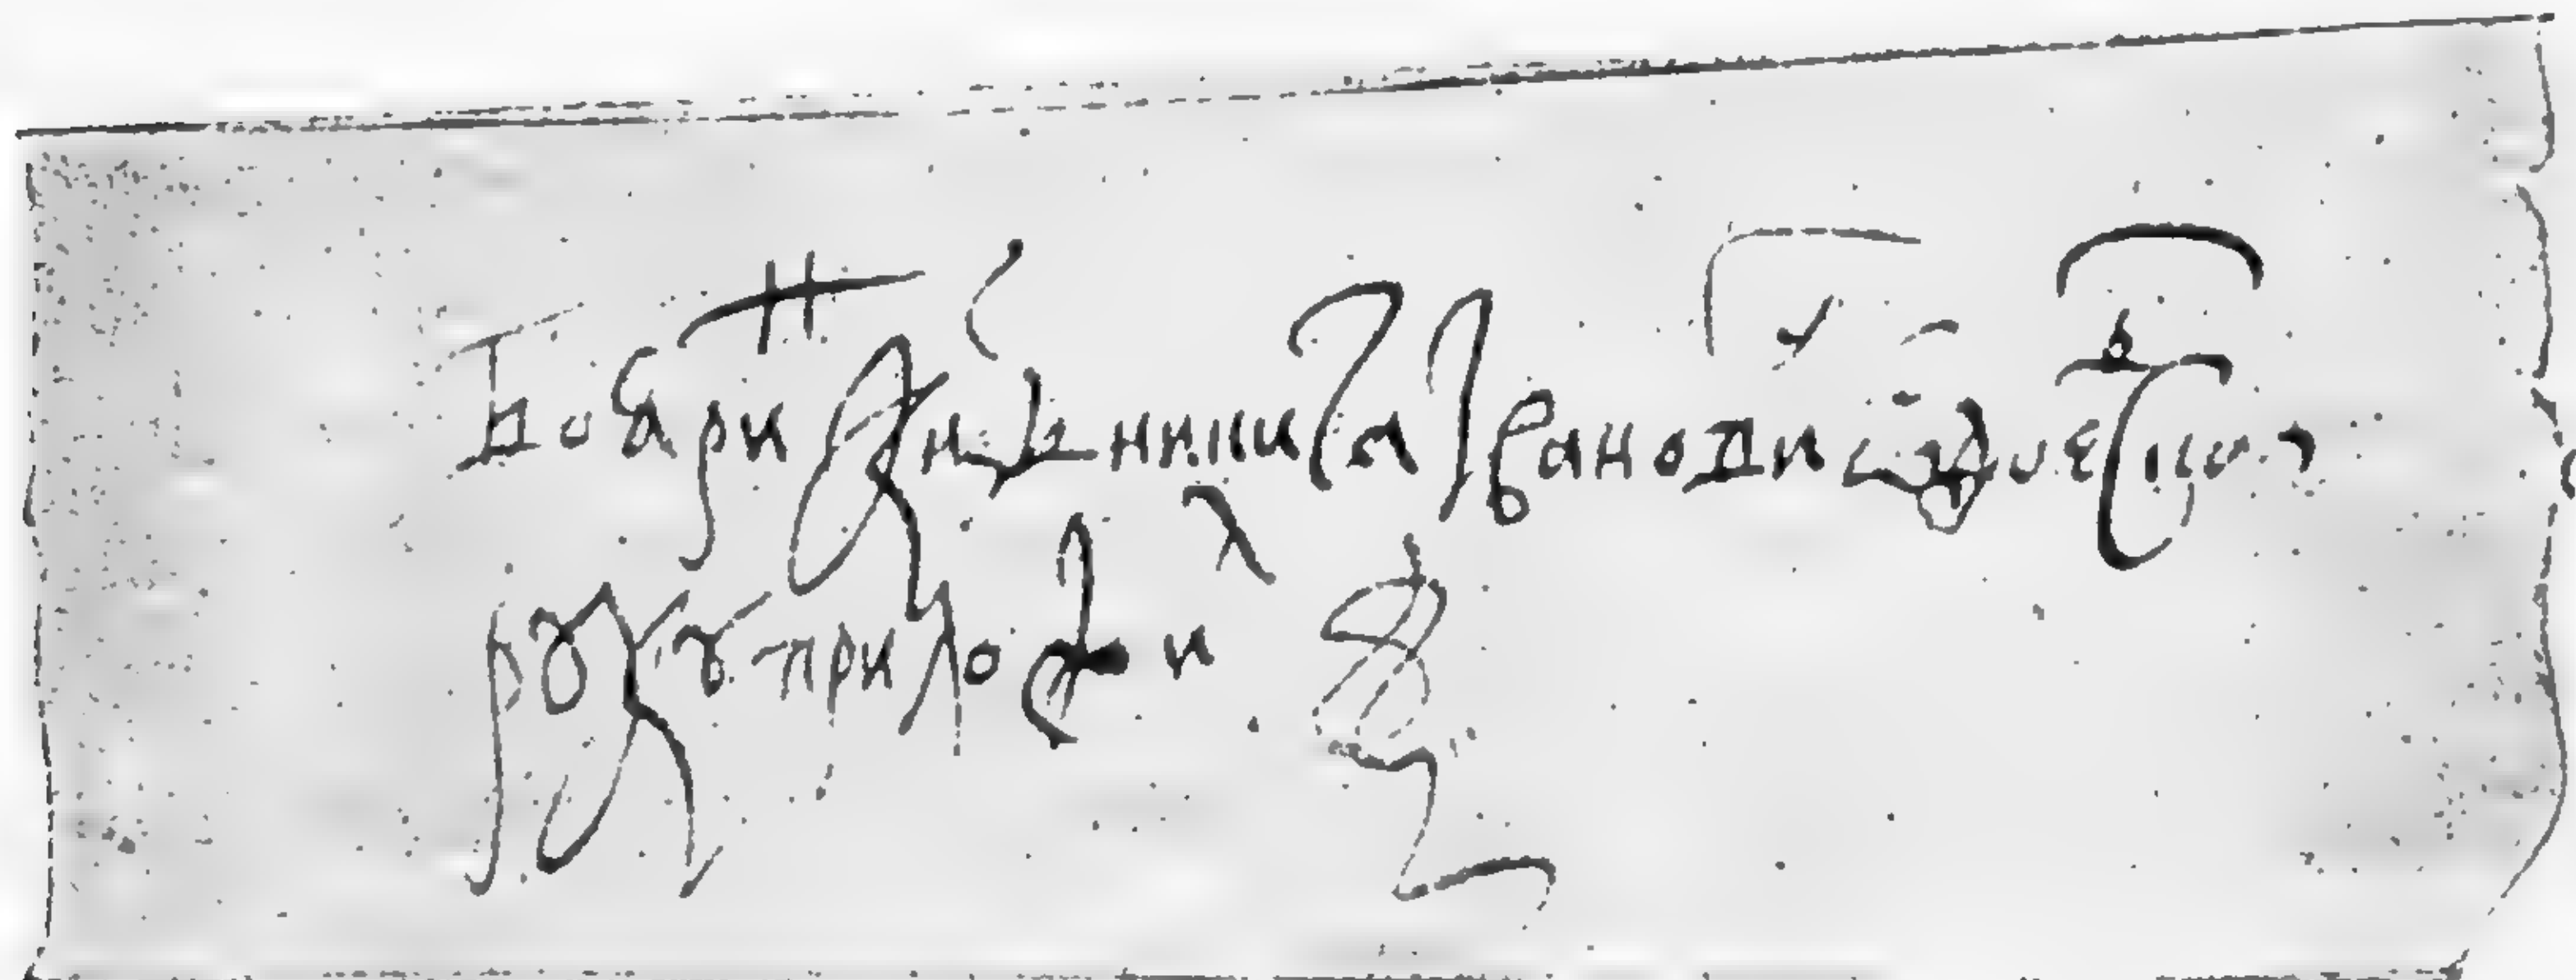 Боярин князь Никита Иванович Одоевской
руку приложил